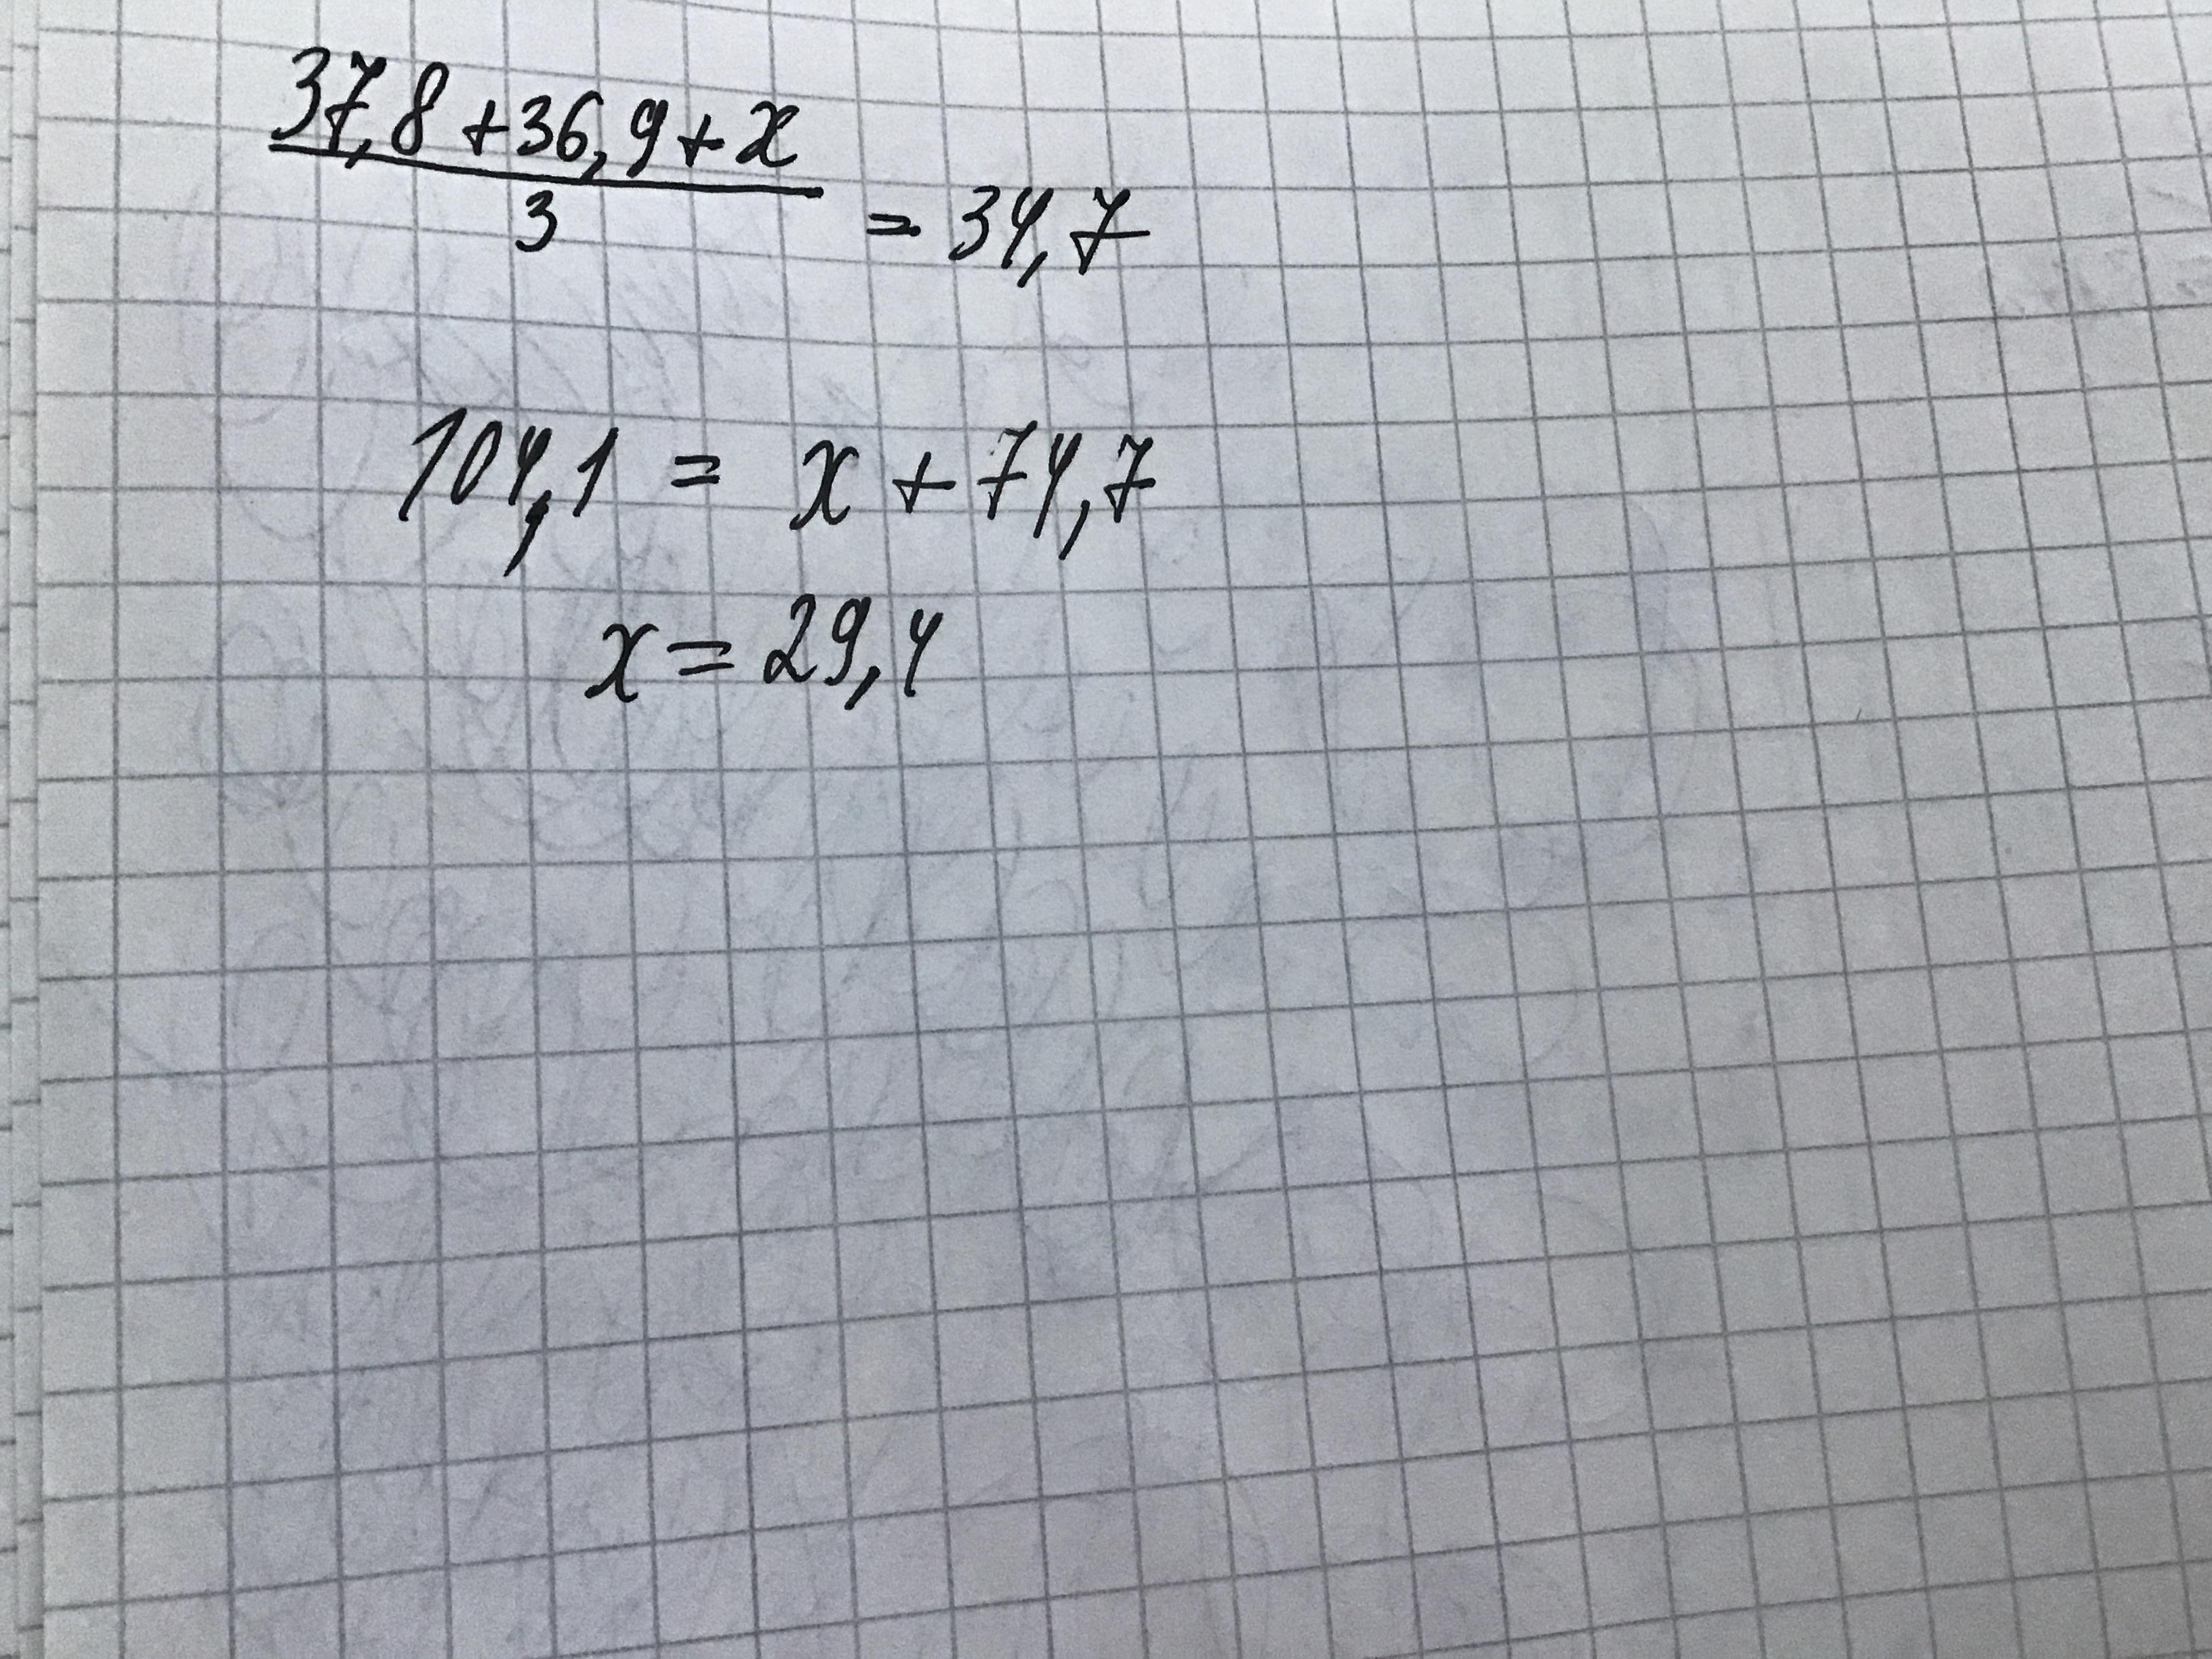 37,8 + 36,9 + x
3
= 34,7
104,1 = x + 74,7
x = 29,4